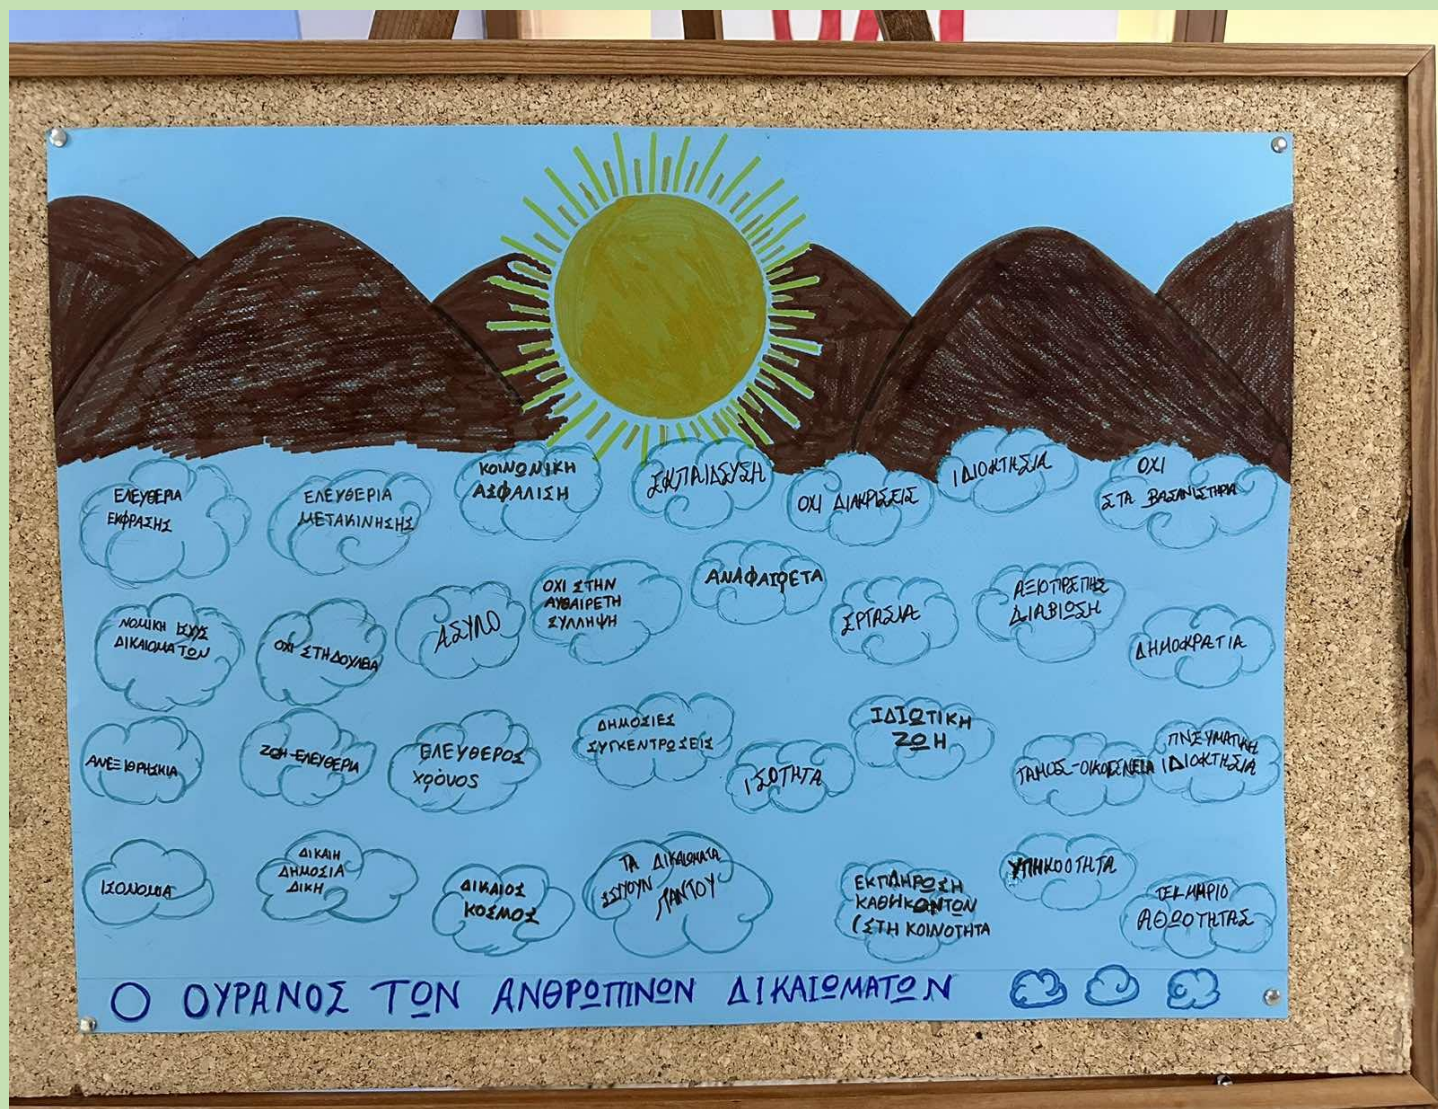 ΕΛΕΥΘΕΡΙΑ
ΕΚΦΡΑΣΗΣ
ΕΛΕΥΘΕΡΙΑ
ΜΕΤΑΚΙΝΗΣΗΣ
ΚΟΙΝΩΝΙΚΗ
ΑΣΦΑΛΙΣΗ
ΕΚΠΑΙΔΕΥΣΗ
ΟΧΙ ΔΙΑΚΡΙΣΕΙΣ
ΙΔΙΟΚΤΗΣΙΑ
ΟΧΙ
ΣΤΑ ΒΑΣΑΝΙΣΤΗΡΙΑ
ΝΟΜΙΚΗ ΙΣΧΥΣ
ΔΙΚΑΙΩΜΑΤΩΝ
ΟΧΙ ΣΤΗ ΔΟΥΛΕΙΑ
ΑΣΥΛΟ
ΟΧΙ ΣΤΗΝ
ΑΥΘΑΙΡΕΤΗ
ΣΥΛΛΗΨΗ
ΑΝΑΦΑΙΡΕΤΑ
ΕΡΓΑΣΙΑ
ΑΞΙΟΠΡΕΠΗΣ
ΔΙΑΒΙΩΣΗ
ΔΗΜΟΚΡΑΤΙΑ
ΑΝΕΞΙΘΡΗΣΚΙΑ
ΖΩΗ-ΕΛΕΥΘΕΡΙΑ
ΕΛΕΥΘΕΡΟΣ
χρόνος
ΔΗΜΟΣΙΕΣ
ΣΥΓΚΕΝΤΡΩΣΕΙΣ
ΙΣΟΤΗΤΑ
ΙΔΙΩΤΙΚΗ
ΖΩΗ
ΓΑΜΟΣ-ΟΙΚΟΓΕΝΕΙΑ
ΠΝΕΥΜΑΤΙΚΗ
ΙΔΙΟΚΤΗΣΙΑ
ΙΣΟΝΟΜΙΑ
ΔΙΚΑΙΗ
ΔΗΜΟΣΙΑ
ΔΙΚΗ
ΔΙΚΑΙΟΣ
ΚΟΣΜΟΣ
ΤΑ ΔΙΚΑΙΩΜΑΤΑ
ΙΣΧΥΟΥΝ ΠΑΝΤΟΥ
ΕΚΠΛΗΡΩΣΗ
ΚΑΘΗΚΟΝΤΩΝ
(ΣΤΗ ΚΟΙΝΟΤΗΤΑ
ΥΠΗΚΟΟΤΗΤΑ
ΤΕΚΜΗΡΙΟ
ΑΘΩΟΤΗΤΑΣ
Ο ΟΥΡΑΝΟΣ ΤΩΝ ΑΝΘΡΩΠΙΝΩΝ ΔΙΚΑΙΩΜΑΤΩΝ